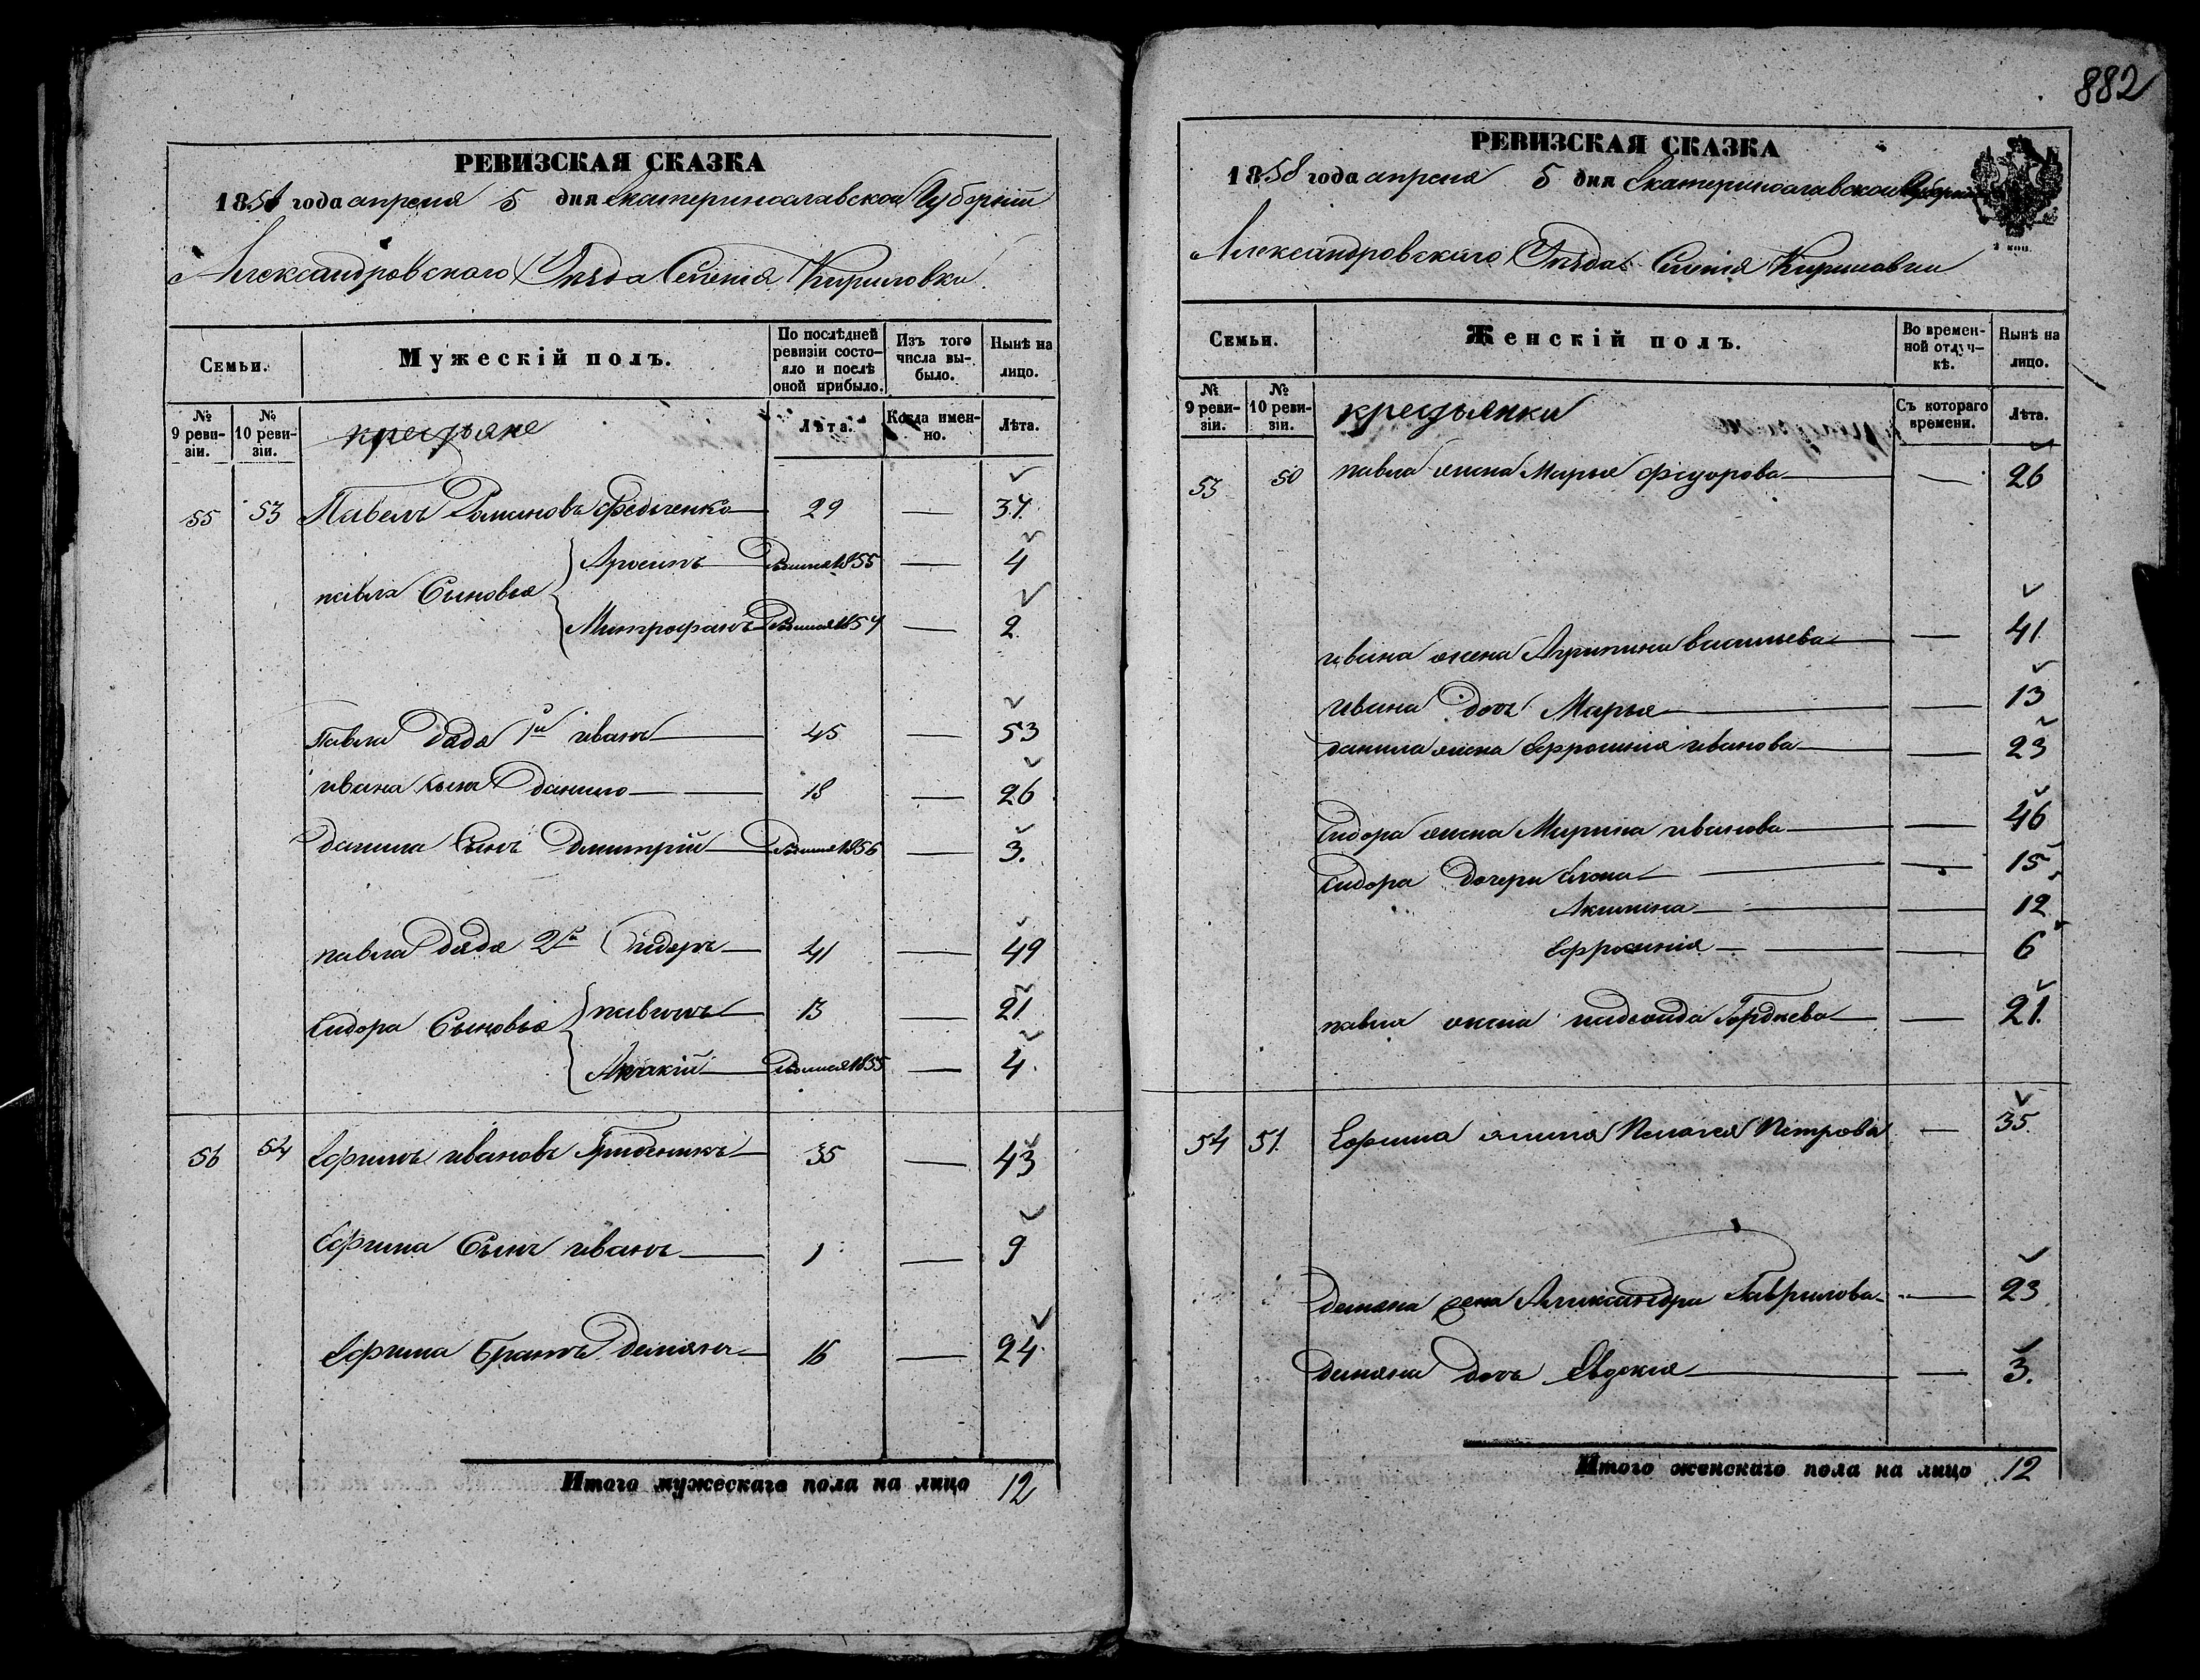 РЕВИЗСКАЯ СКАЗКА
1858 года апреля 5 дня Екатеринославской Губернии
Александровского Уезда Селения Кириловки
Семьи. Мужескій полъ. По послѣдней ревизіи состояло и послѣ оной прибыло. Изъ того числа выбыло. Нынѣ на лицо.
№ 9 ревизіи. № 10 ревизіи. крестьяне Лѣта. Когда именно. Лѣта.
55 53 Павелъ Романовъ Федченко 29 — 37
павла Сыновья Арсенъ родился 1855 — 4
Митрофанъ родился 1857 — 2
Павла дядя 1й иванъ 45 — 53
ивана сынъ данило 18 — 26
данила Сынъ дмитрій родился 1856 — 3.
павла дядя 2й Сидоръ 41 — 49
Сидора Сыновья павелъ 13 — 21
Акакій родился 1855 — 4.
56 54 Ефимъ ивановъ 35 — 43
Ефима Сынъ иванъ 1 — 9
Ефима Братъ демянъ 16 — 24
Итого мужескаго пола на лицо 12
882
РЕВИЗСКАЯ СКАЗКА
1858 года апреля 5 дня Екатеринославской Губернии
1 коп.
Александровского Уезда Селения Кириловки
Семьи. Женскій полъ. Во временной отлучкѣ. Нынѣ на лицо.
№ 9 ревизіи. № 10 ревизіи. крестьянки Съ котораго времени. Лѣта.
53 50 павла жена Марья федорова — 26
ивана жена Агрипина васильева — 41
ивана дочь Марья — 13
данила жена Ефросиния иванова — 23
Сидора жена Марина иванова — 46
Сидора дочери Елена — 15
Акилина — 12
Ефросиния — 6
павла жена Гордеева — 21.
54 51. Ефима жена Пелагея Петрова — 35.
демяна жена Александра Гаврилова — 23
демяна дочь Евдокия — 3.
Итого женскаго пола на лицо 12